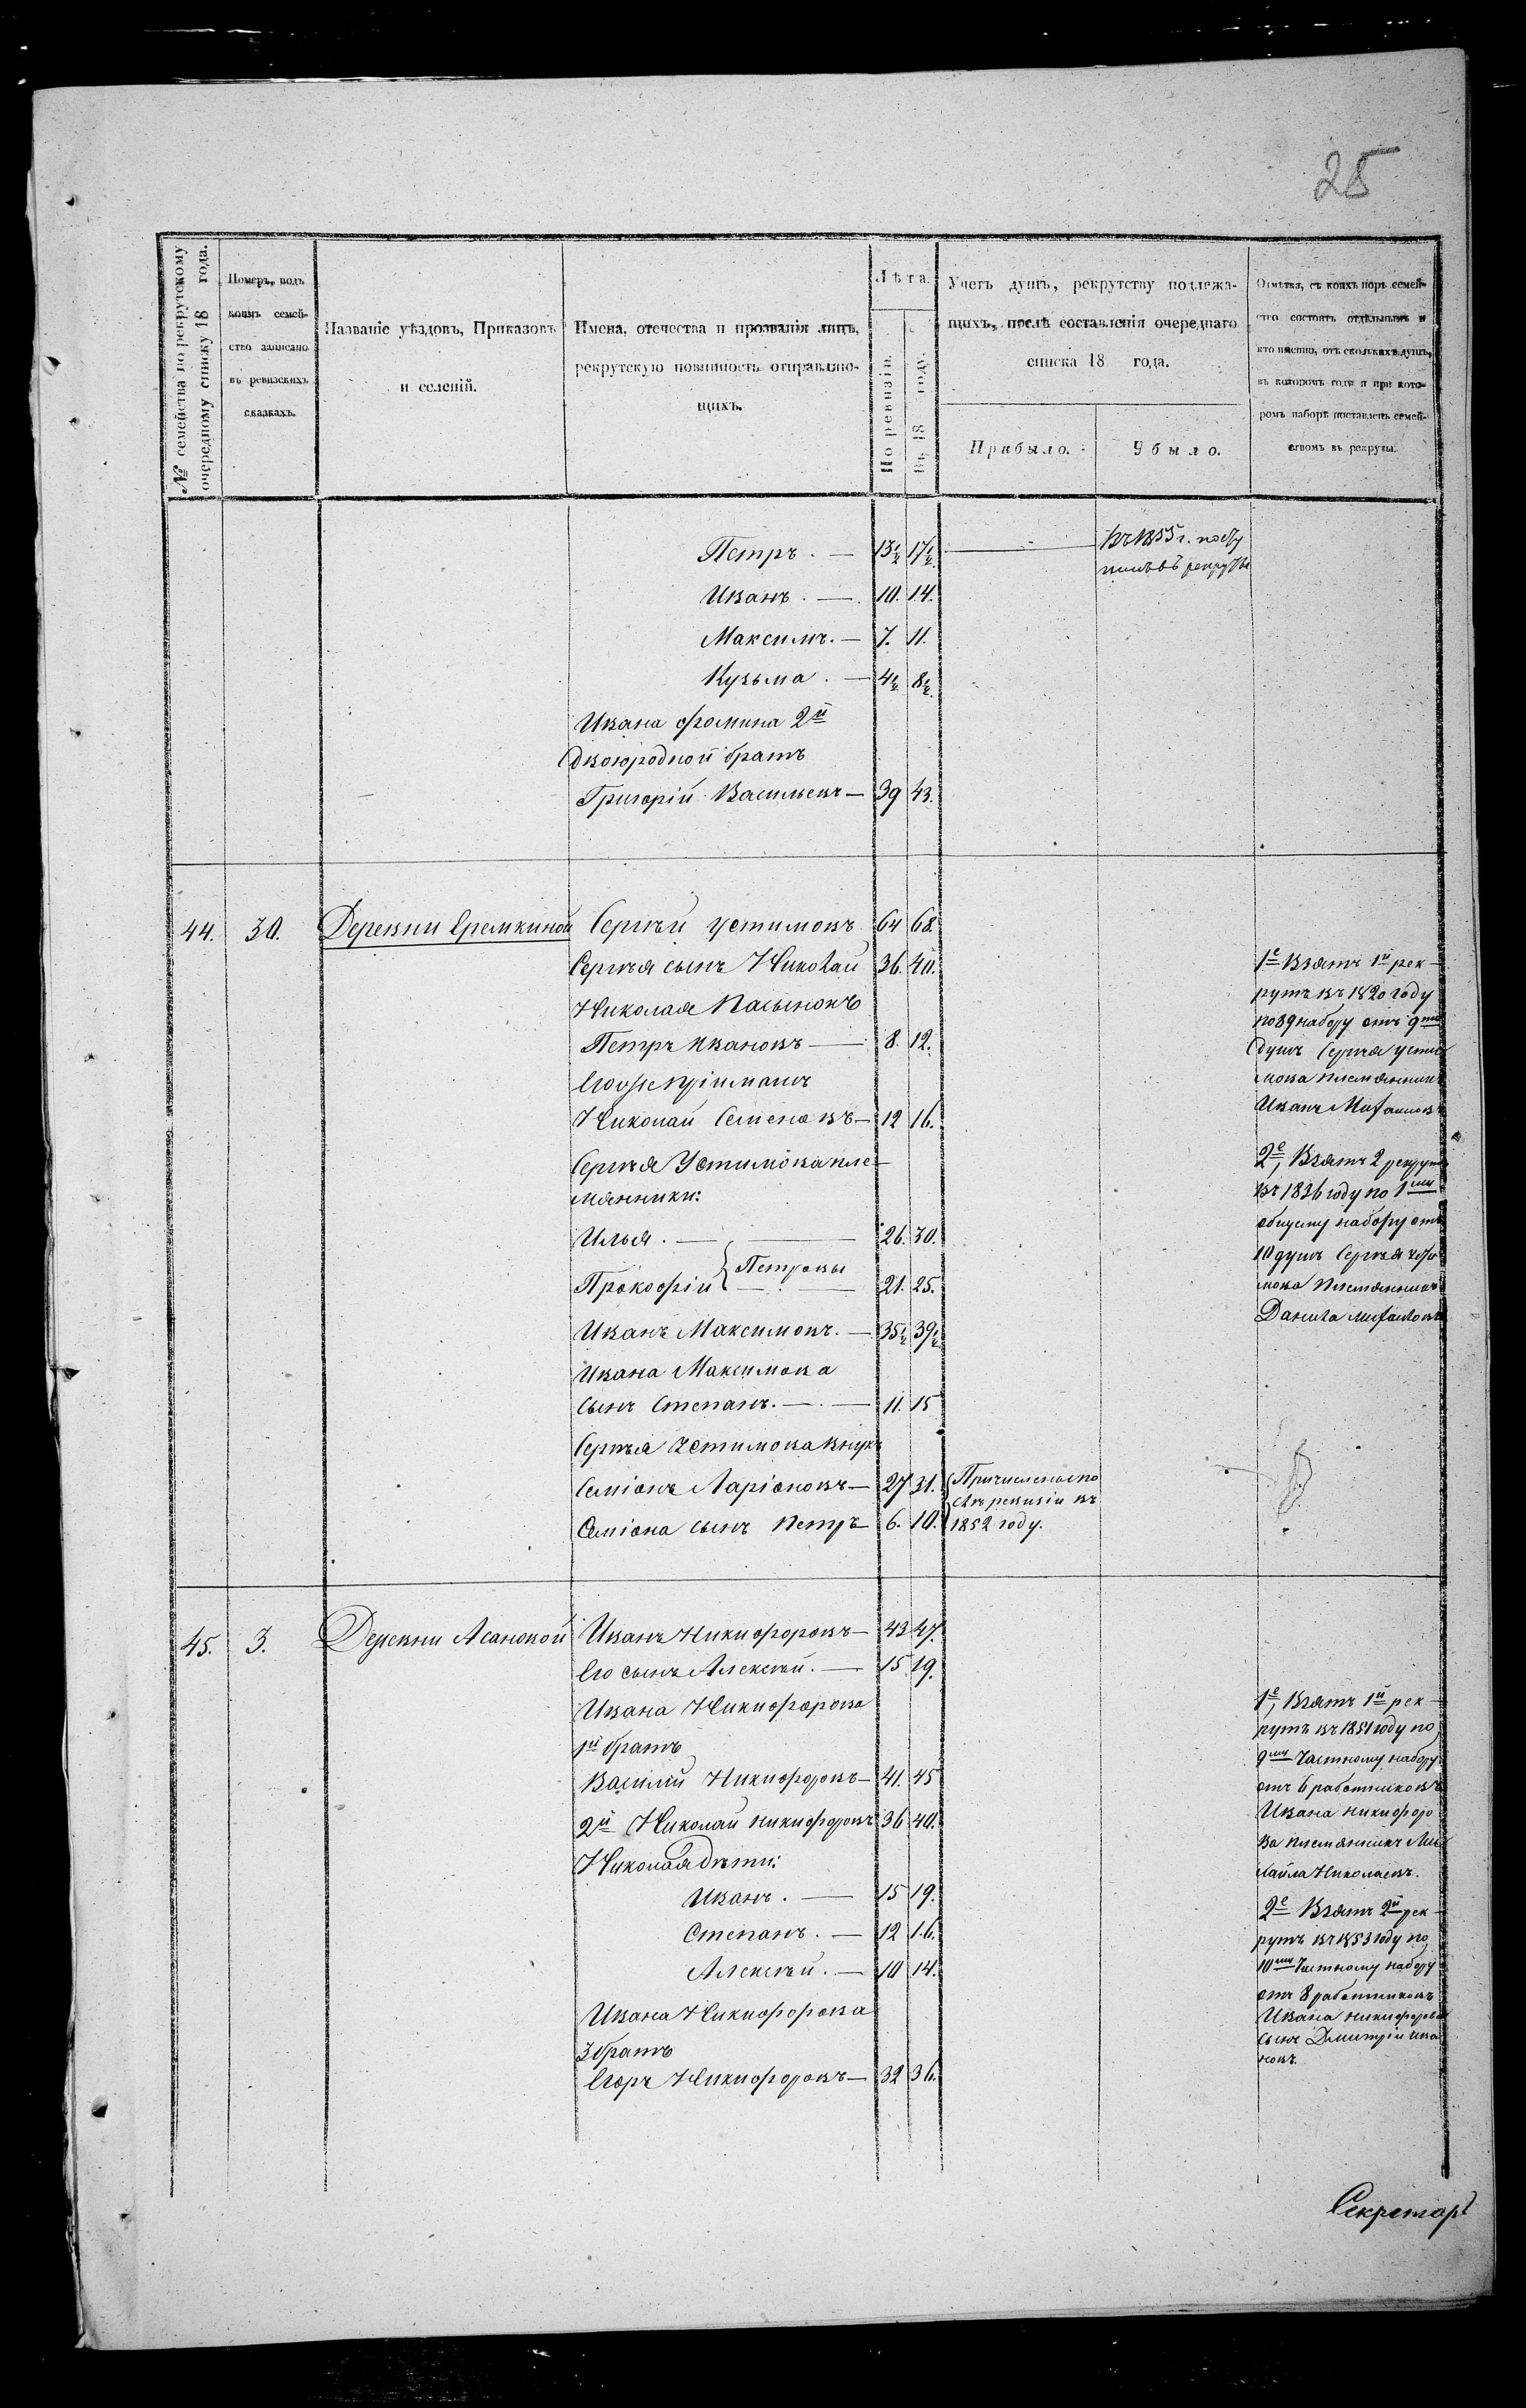 25
№ семейства по рекрутскому очередному списку 18 года.
Номеръ, подъ коимъ семейство записано въ ревизскихъ сказкахъ.
Названіе уѣздовъ, Приказовъ и селеній.
Имена, отечества и прозванія лицъ, рекрутскую повинность отправляющихъ.
Лѣта.
По ревизіи.
Въ 18 году.
Учетъ душъ, рекрутству подлежащихъ, послѣ составленія очереднаго списка 18 года.
Прибыло.
Убыло.
Отмѣтка, съ коихъ поръ семейство состоитъ отдѣльнымъ и кто именно, отъ сколькихъ душъ, въ которомъ году и при которомъ наборѣ поставленъ семействомъ въ рекруты.
Петръ. — 13½ 17½ — Въ 1855 г. посту
пилъ въ рекруты
Иванъ. — 10. 14.
Максимъ. — 7. 11.
Кузьма. — 4½ 8½
Ивана Фомина 2й
двоюродной братъ
Григорій Васильевъ — 39 43.
44. 30. Деревни Еремкиной Сергѣй Устимовъ 64 68.
Сергѣя сынъ Николай 36. 40.
Николая Пасынокъ
Петръ Ивановъ — 8. 12.
Его же пріимышъ
Николай Семеновъ — 12 16.
Сергѣя Устимова пле-
мянники:
Илья. — 26. 30.
Прокофій } Петровы — 21. 25.
Иванъ Максимовъ. — 35½ 39½
Ивана Максимова
сынъ Степанъ. — 11. 15
Сергѣя Устимова внукъ
Семіонъ Ларіоновъ — 27 31. Причислены по
слѣ ревизіи въ
Семіона сынъ Петръ — 6. 10. 1852 году.
1е Взятъ 1й рек-
рутъ въ 1820 году
по 89 набору отъ 9ти
душъ Сергѣя Усти
мова племянникъ
Иванъ Михайловъ
2е, Взятъ 2 рекрутъ
въ 1836 году по 1му
общему набору отъ
10 душъ Сергѣя Усти
мова Племянникъ
Данила Михайловъ
45. 3. Деревни Асановой Иванъ Никифоровъ — 43 47.
Его сынъ Алексѣй. — 15 19.
Ивана Никифорова
1й братъ
Василій Никифоровъ — 41. 45
2й Николай Никифоровъ 36 40.
Николая дѣти:
Иванъ. — 15 19.
Степанъ. — 12 16.
Алексѣй. — 10 14.
Ивана Никифорова
3 братъ
Егоръ Никифоровъ — 32 36.
1е, Взятъ 1й рек-
рутъ въ 1851 году по
9му Частному набору
отъ 6 работниковъ
Ивана Никифоро
ва племянникъ Ми
хайла Николаевъ.
2е Взятъ 2й рек-
рутъ въ 1853 году по
10му Частному набору
отъ 8 работниковъ
Ивана Никифорова
сынъ Дмитрій Ива
новъ.
Секретарь